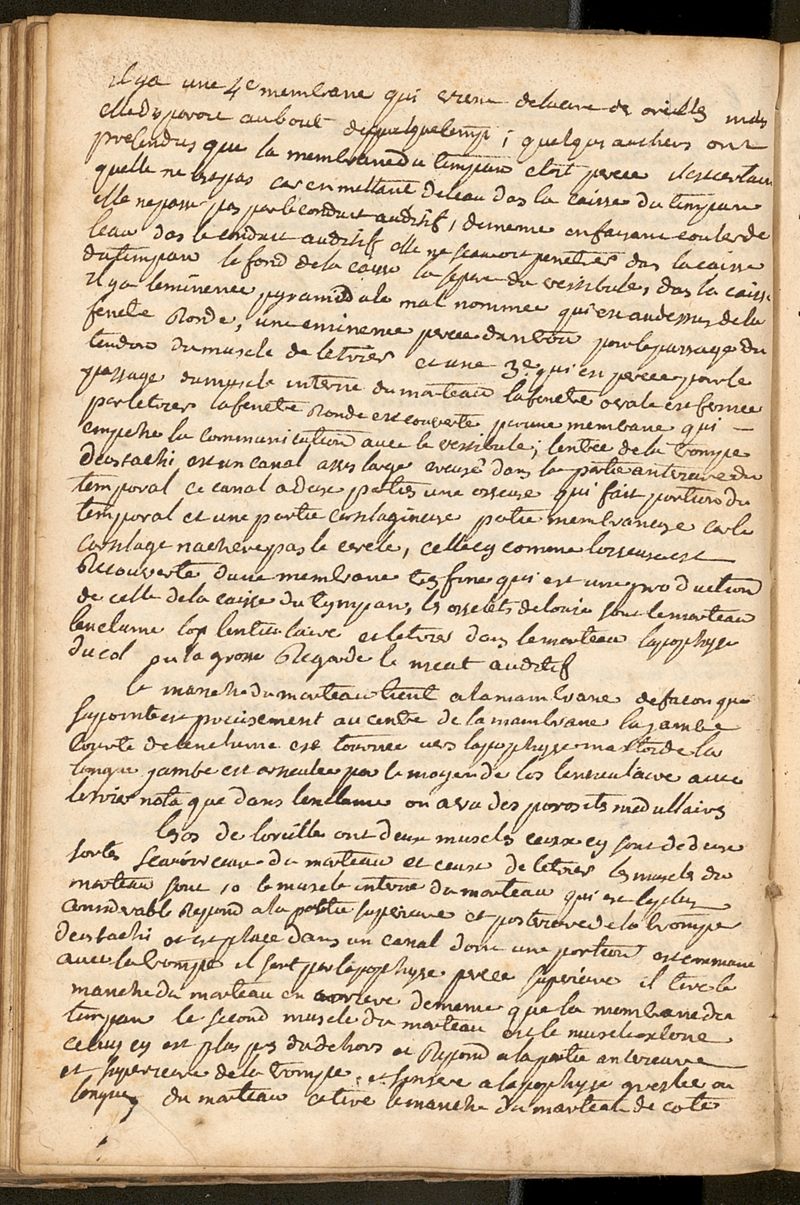 il ya une 4e membrane qui vient de la cire des oreilles mais
elle disparoit au bout de quelque temps; quelques authers ont
pretendus que la membrane du timpan etoit percée il est certain
quelle ne l'est pas car en mettant de leau dans la caisse du timpan
elle ne passe pas par le conduit auditif, de meme en faisant couler de
leau das le conduit auditif elle ne scauroit penetrer das la caisse
du timpan le fond de la caisse la separe du vestibule, das la caisse
il ya leminence pyramidale mal nommée qui est audessus de la
fenetre Ronde, une eminence percée dun trou pour le passage du
tendon du muscle de letrier et une 3e qui est percée pour le
passage du muscle interne du marteau la fenetre ovale est fermée
par letrier la fenetre Ronde est couverte par une membrane qui
empeche la communication avec le vestibule; lentrée de la trompe
deustachi est un canal asses large creusé dans la partie anterieure du
temporal ce canal a deux parties une osseuse qui fait portion du
temporal et une partie cartilagineuse partie membraneuse car le
cartilage nacheve pas le cercle, celle cy comme losseuse est
Recouverte dune membrane tres fine qui est une production
de celle de la caisse du tympan, les osselets de louie sont le marteau
lenclume los lenticulaire et letrier dans le marteau lapophyse
du col ou la grosse Regarde le meat auditif
le manche du marteau tient a la mambrane de facon que
sa pointe est precisement au centre de la mambrane la jambe
courte de lenclume est tournée vers lapophyse mastoide la
longue jambe est articulée par le moyen de los lenticulaire avec
letrier nota que dans lenclume on a vu des porosités medullaires
les os de loreille ont deux muscles ceux cy sont de deux
sortes scavoir ceux du marteau et ceux de letrier les muscles du
marteau sont 1o le muscle interne du marteau qui est le plus
considerable Repond a la partie superieure et posterieure de la trompe
deustachi et est place dans un canal dont une portion est commune
avec la trompe il sort par lapophyse percée superieure il tire le
manche du marteau en arriere de meme que la membrane du
timpan le second muscle du marteau est le muscle externe
celuy cy est plus pres du dehors et Repond a la partie anterieure
et superieure de la trompe et sinsere a lapophyse greslée ou
longue du marteau et tire le manche du marteau de coté